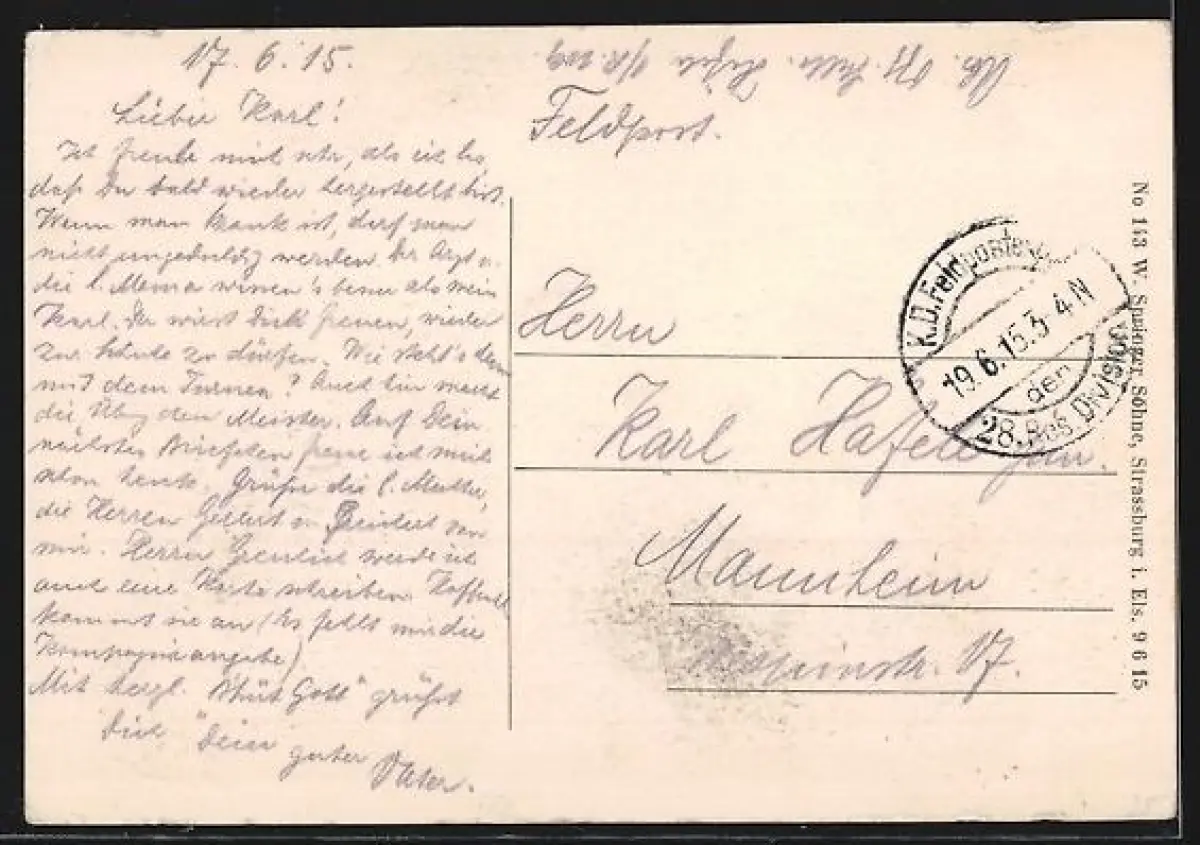 17.6.15.
Lieber Karl!
Ich freute mich sehr, als ich las,
daß Du bald wieder hergestellt bist.
Wenn man krank ist, darf man
nicht ungeduldig werden. Der Arzt u.
die l. Mama wissen's besser als mein
Karl. Du wirst Dich freuen, wieder
zur Schule zu dürfen. Wie steht's denn
mit dem Turnen? Auch hin macht
die Übg den Meister. Auf Dein
nächstes Briefchen freue ich mich
schon heute. Grüße die l. Mutter,
die Herren Gellert u. von
mir. Herrn werde ich
auch eine Karte schreiben. Hoffentl.
kommt sie an (Es fehlt mir die
Kompagnieangabe)
Mit herzl. "Bhüt Gott" grüßt
Dich Dein guter Vater.
Feldpost.
Herrn
Karl Hafele jun.
Mannheim
str. 17.
K.D. Feldpostexp.
19.6.15. 3-4 N
den
28. Res. Division
No 143 W. Springer Söhne, Strassburg i. Els. 9 6 15